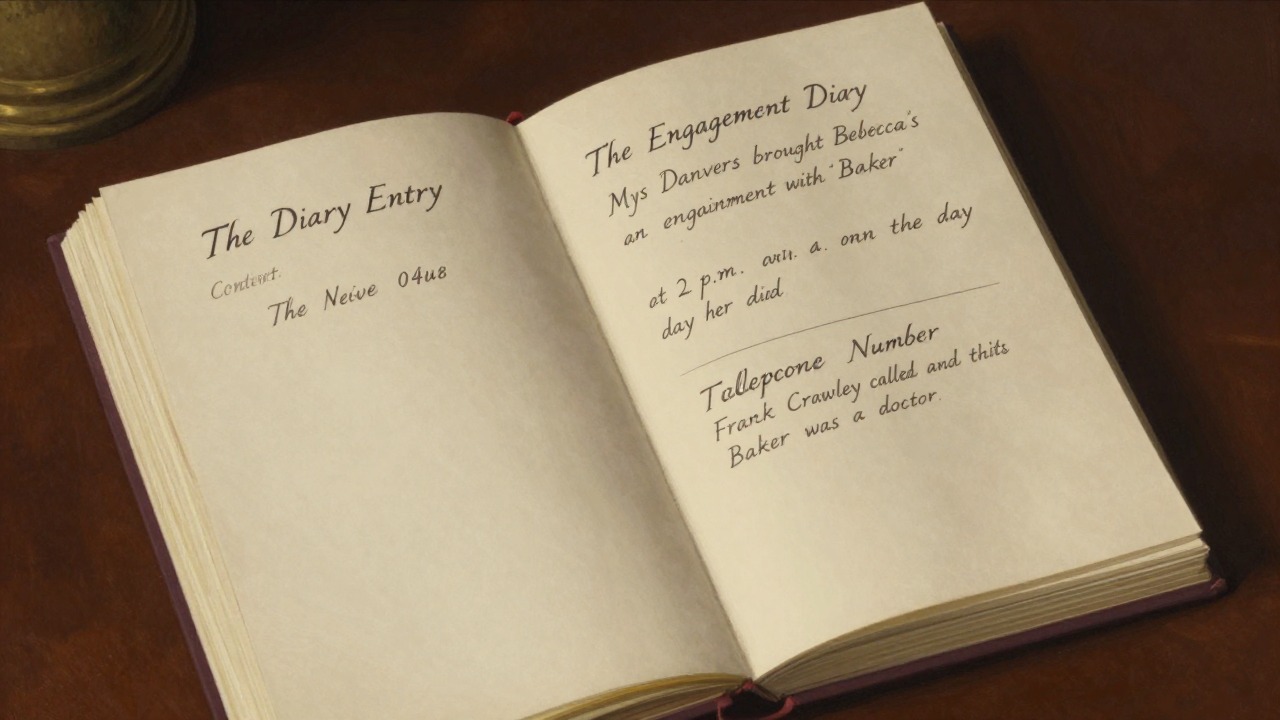 The Diary Entry
The Neive 04u8
The Engagement Diary
Mys Danvers brought Bebecca's
an engainment with "Baker"
at 2 p.m. a. onn the day
day her died
Tallepcone Number
Frank Crawley called and thits
Baker was a doctor.